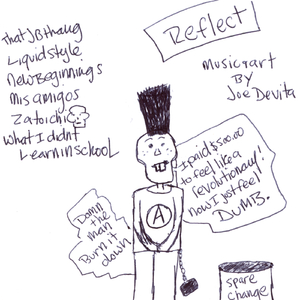 ThatJBthang
Liquidstyle
NewBeginnings
Mis amigos
Zatoichi
What I didnt
Learn in school
Reflect
Music+art
By
Joe Devita
I paid $500.00
to feel like a
revolutionary!
Now I just feel
DUMB.
Damn
the
man
Burn it
down
A
spare
change